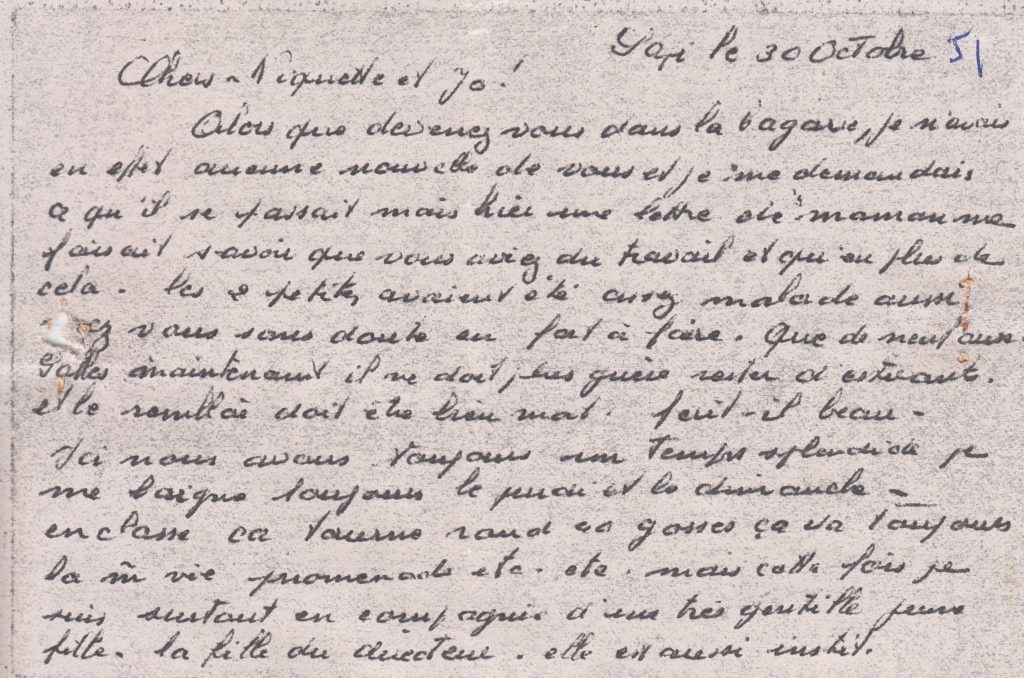 Safi le 30 Octobre 51
Chers - Niquette et Jo!
Alors que devenez vous dans la bagarre, je n'avais
en effet aucune nouvelle de vous et je me demandais
ce qu'il se passait mais hier une lettre de maman me
faisait savoir que vous aviez du travail et qu'en plus de
cela. les 2 petites avaient été assez malade aussi
vous sans doute eu fort à faire. Que de neuf aux
Gattes maintenant il ne doit plus guère rester d'estivants.
et le doit être bien mort. fait-il beau -
Ici nous avons toujours un temps splendide je
me baigne toujours le jeudi et le dimanche -
en classe ça tourne rond gosses ça va toujours
la m̄ vie promenade etc. etc. mais cette fois je
suis surtout en compagnie d'une très gentille jeune
fille. la fille du directeur. elle est aussi instit.